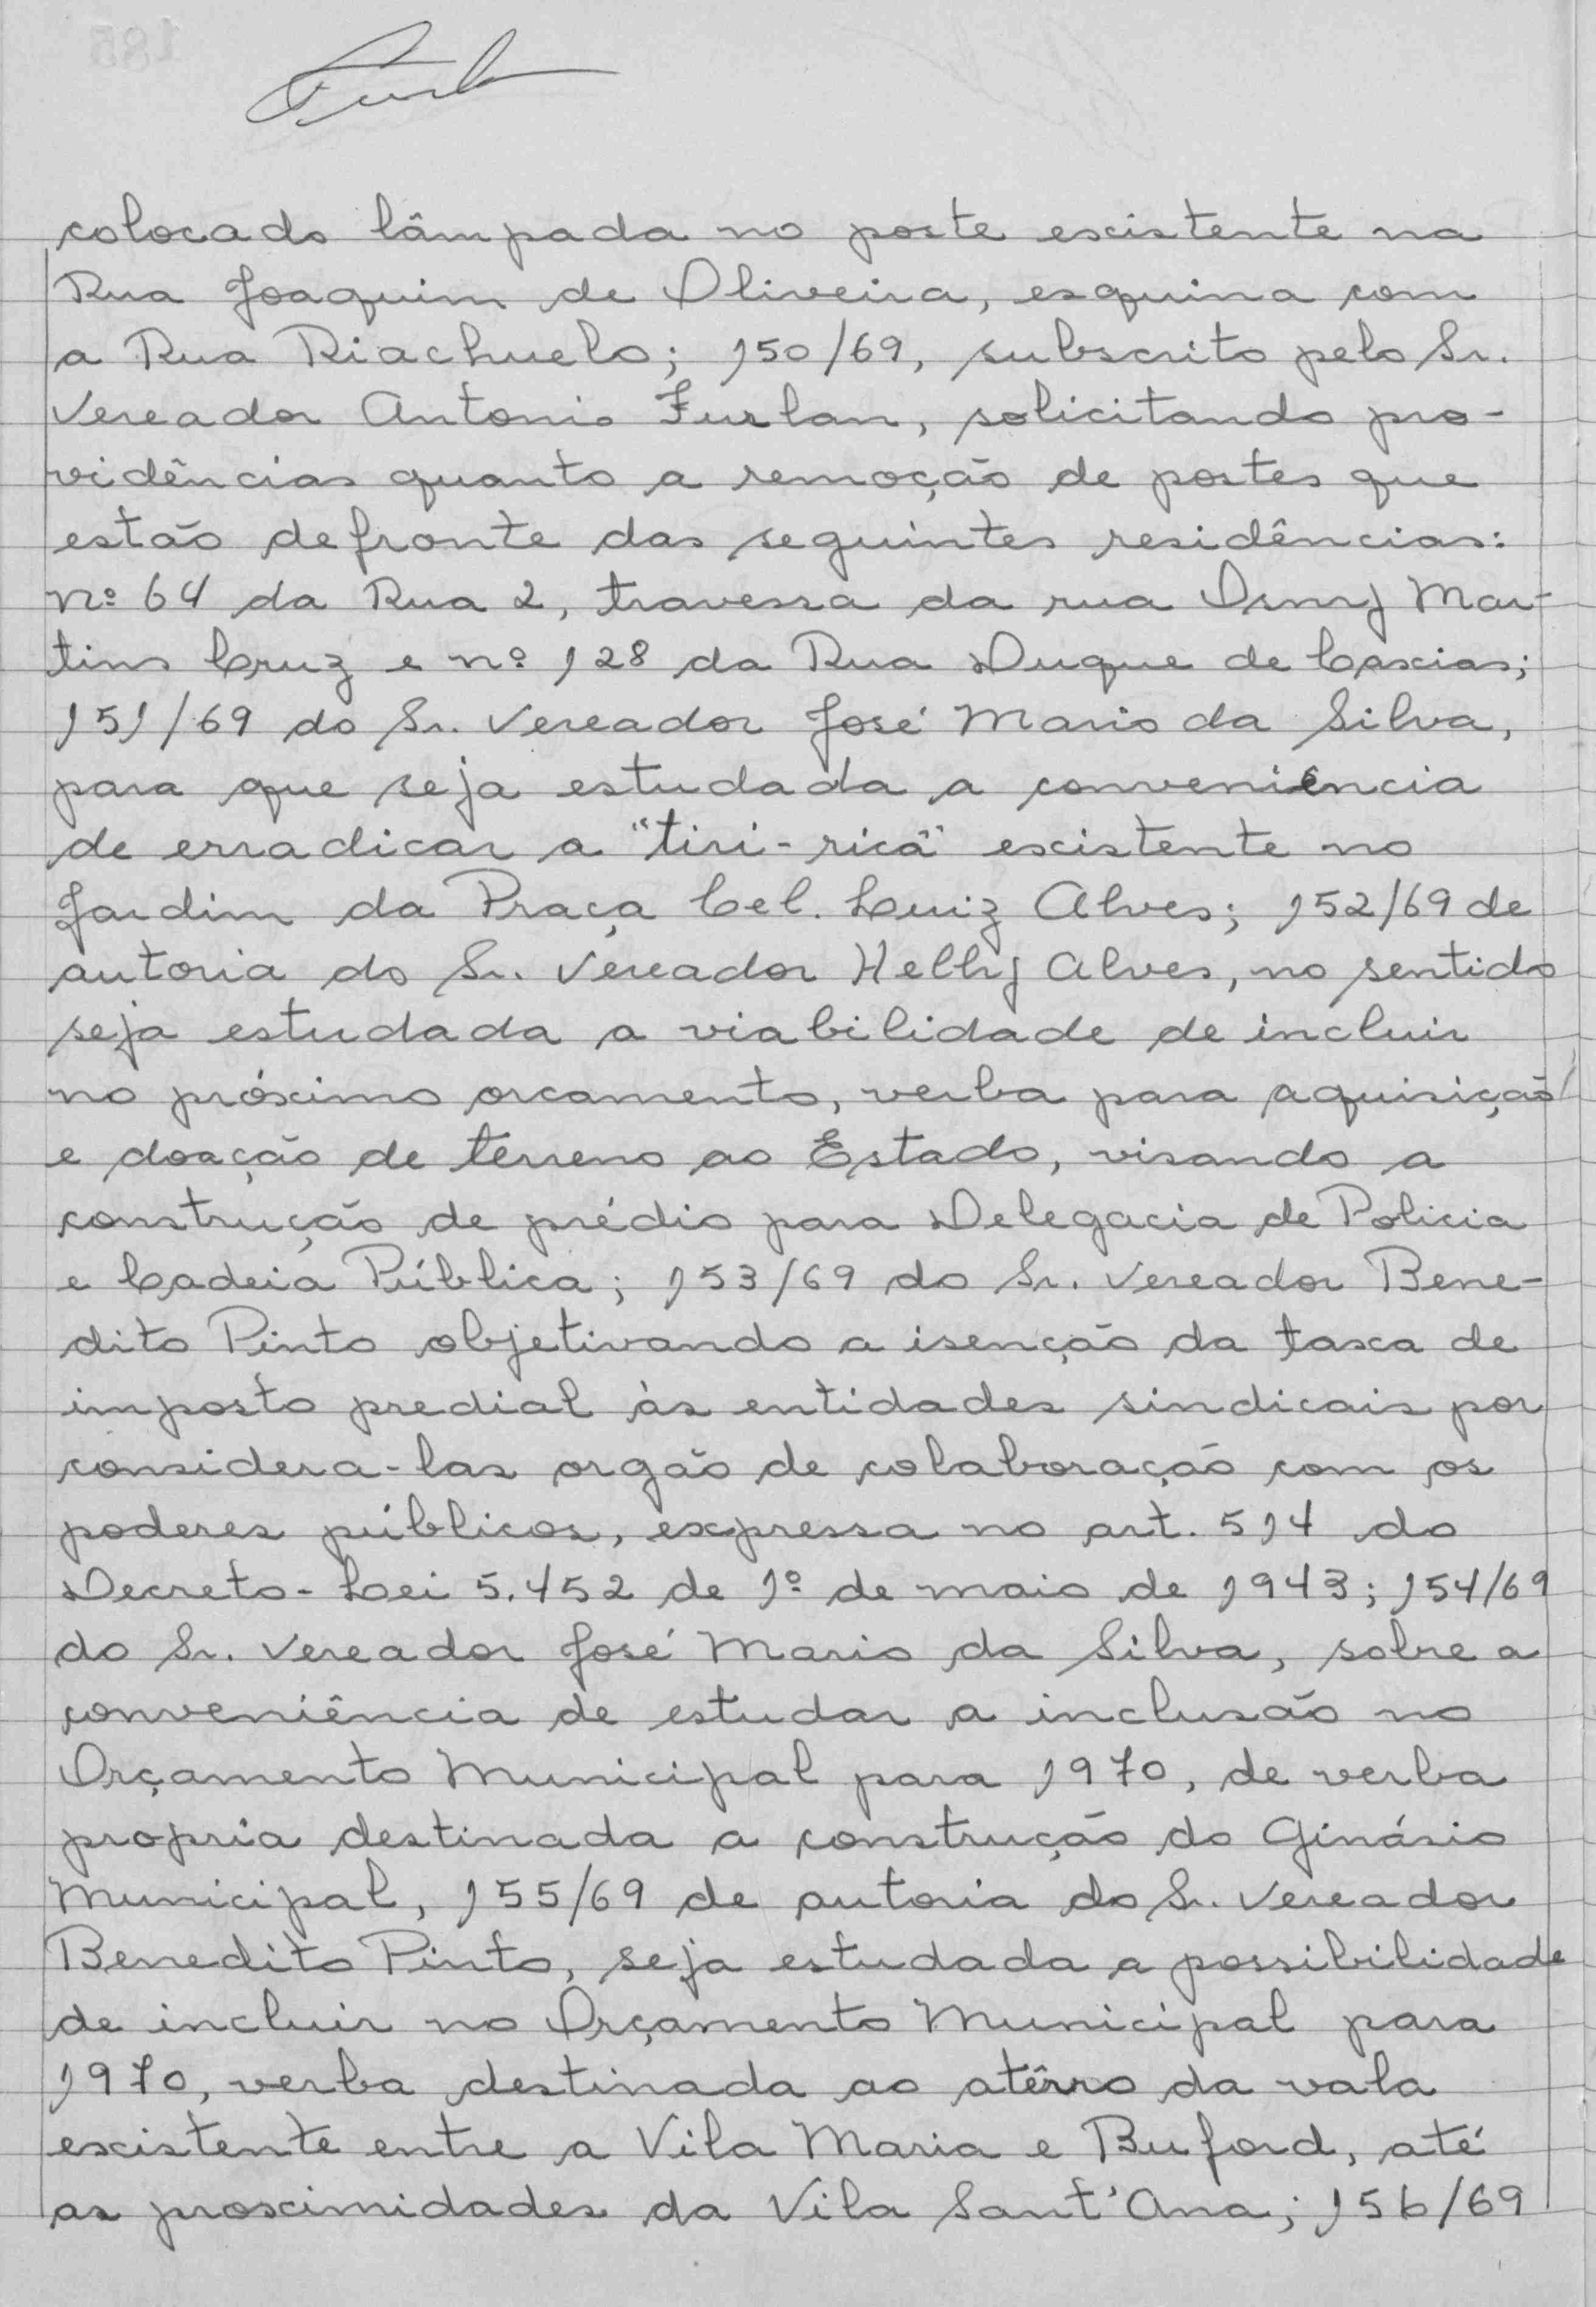 colocado lâmpada no poste existente na
Rua Joaquim de Oliveira, esquina com
a Rua Riachuelo; 150/69, subscrito pelo Sr.
Vereador Antonio Furlan, solicitando pro-
vidências quanto a remoção de postes que
estão defronte das seguintes residências:
nº 64 da Rua 2, travessa da rua Osmy Mar-
tins Cruz e nº 128 da Rua Duque de Caxias;
151/69 do Sr. Vereador José Mario da Silva,
para que seja estudada a conveniência
de erradicar a "tiri-rica" existente no
Jardim da Praça Cel. Luiz Alves; 152/69 de
autoria do Sr. Vereador Helly Alves, no sentido
seja estudada a viabilidade de incluir
no próximo orcamento, verba para aquisição
e doação de terreno ao Estado, visando a
construção de prédio para Delegacia de Policia
e Cadeia Pública; 153/69 do Sr. Vereador Bene-
dito Pinto objetivando a isenção da taxa de
imposto predial às entidades sindicais por
considera-las orgão de colaboração com os
poderes públicos, expressa no art. 514 do
Decreto-Lei 5.452 de 1º de maio de 1943; 154/69
do Sr. Vereador José Mario da Silva, sobre a
conveniência de estudar a inclusão no
Orçamento Municipal para 1970, de verba
propria destinada a construção do Ginásio
Municipal, 155/69 de autoria do Sr. Vereador
Benedito Pinto, seja estudada a possibilidade
de incluir no Orçamento Municipal para
1970, verba destinada ao atêrro da vala
existente entre a Vila Maria e Buford, até
as proximidades da Vila Sant'Ana; 156/69